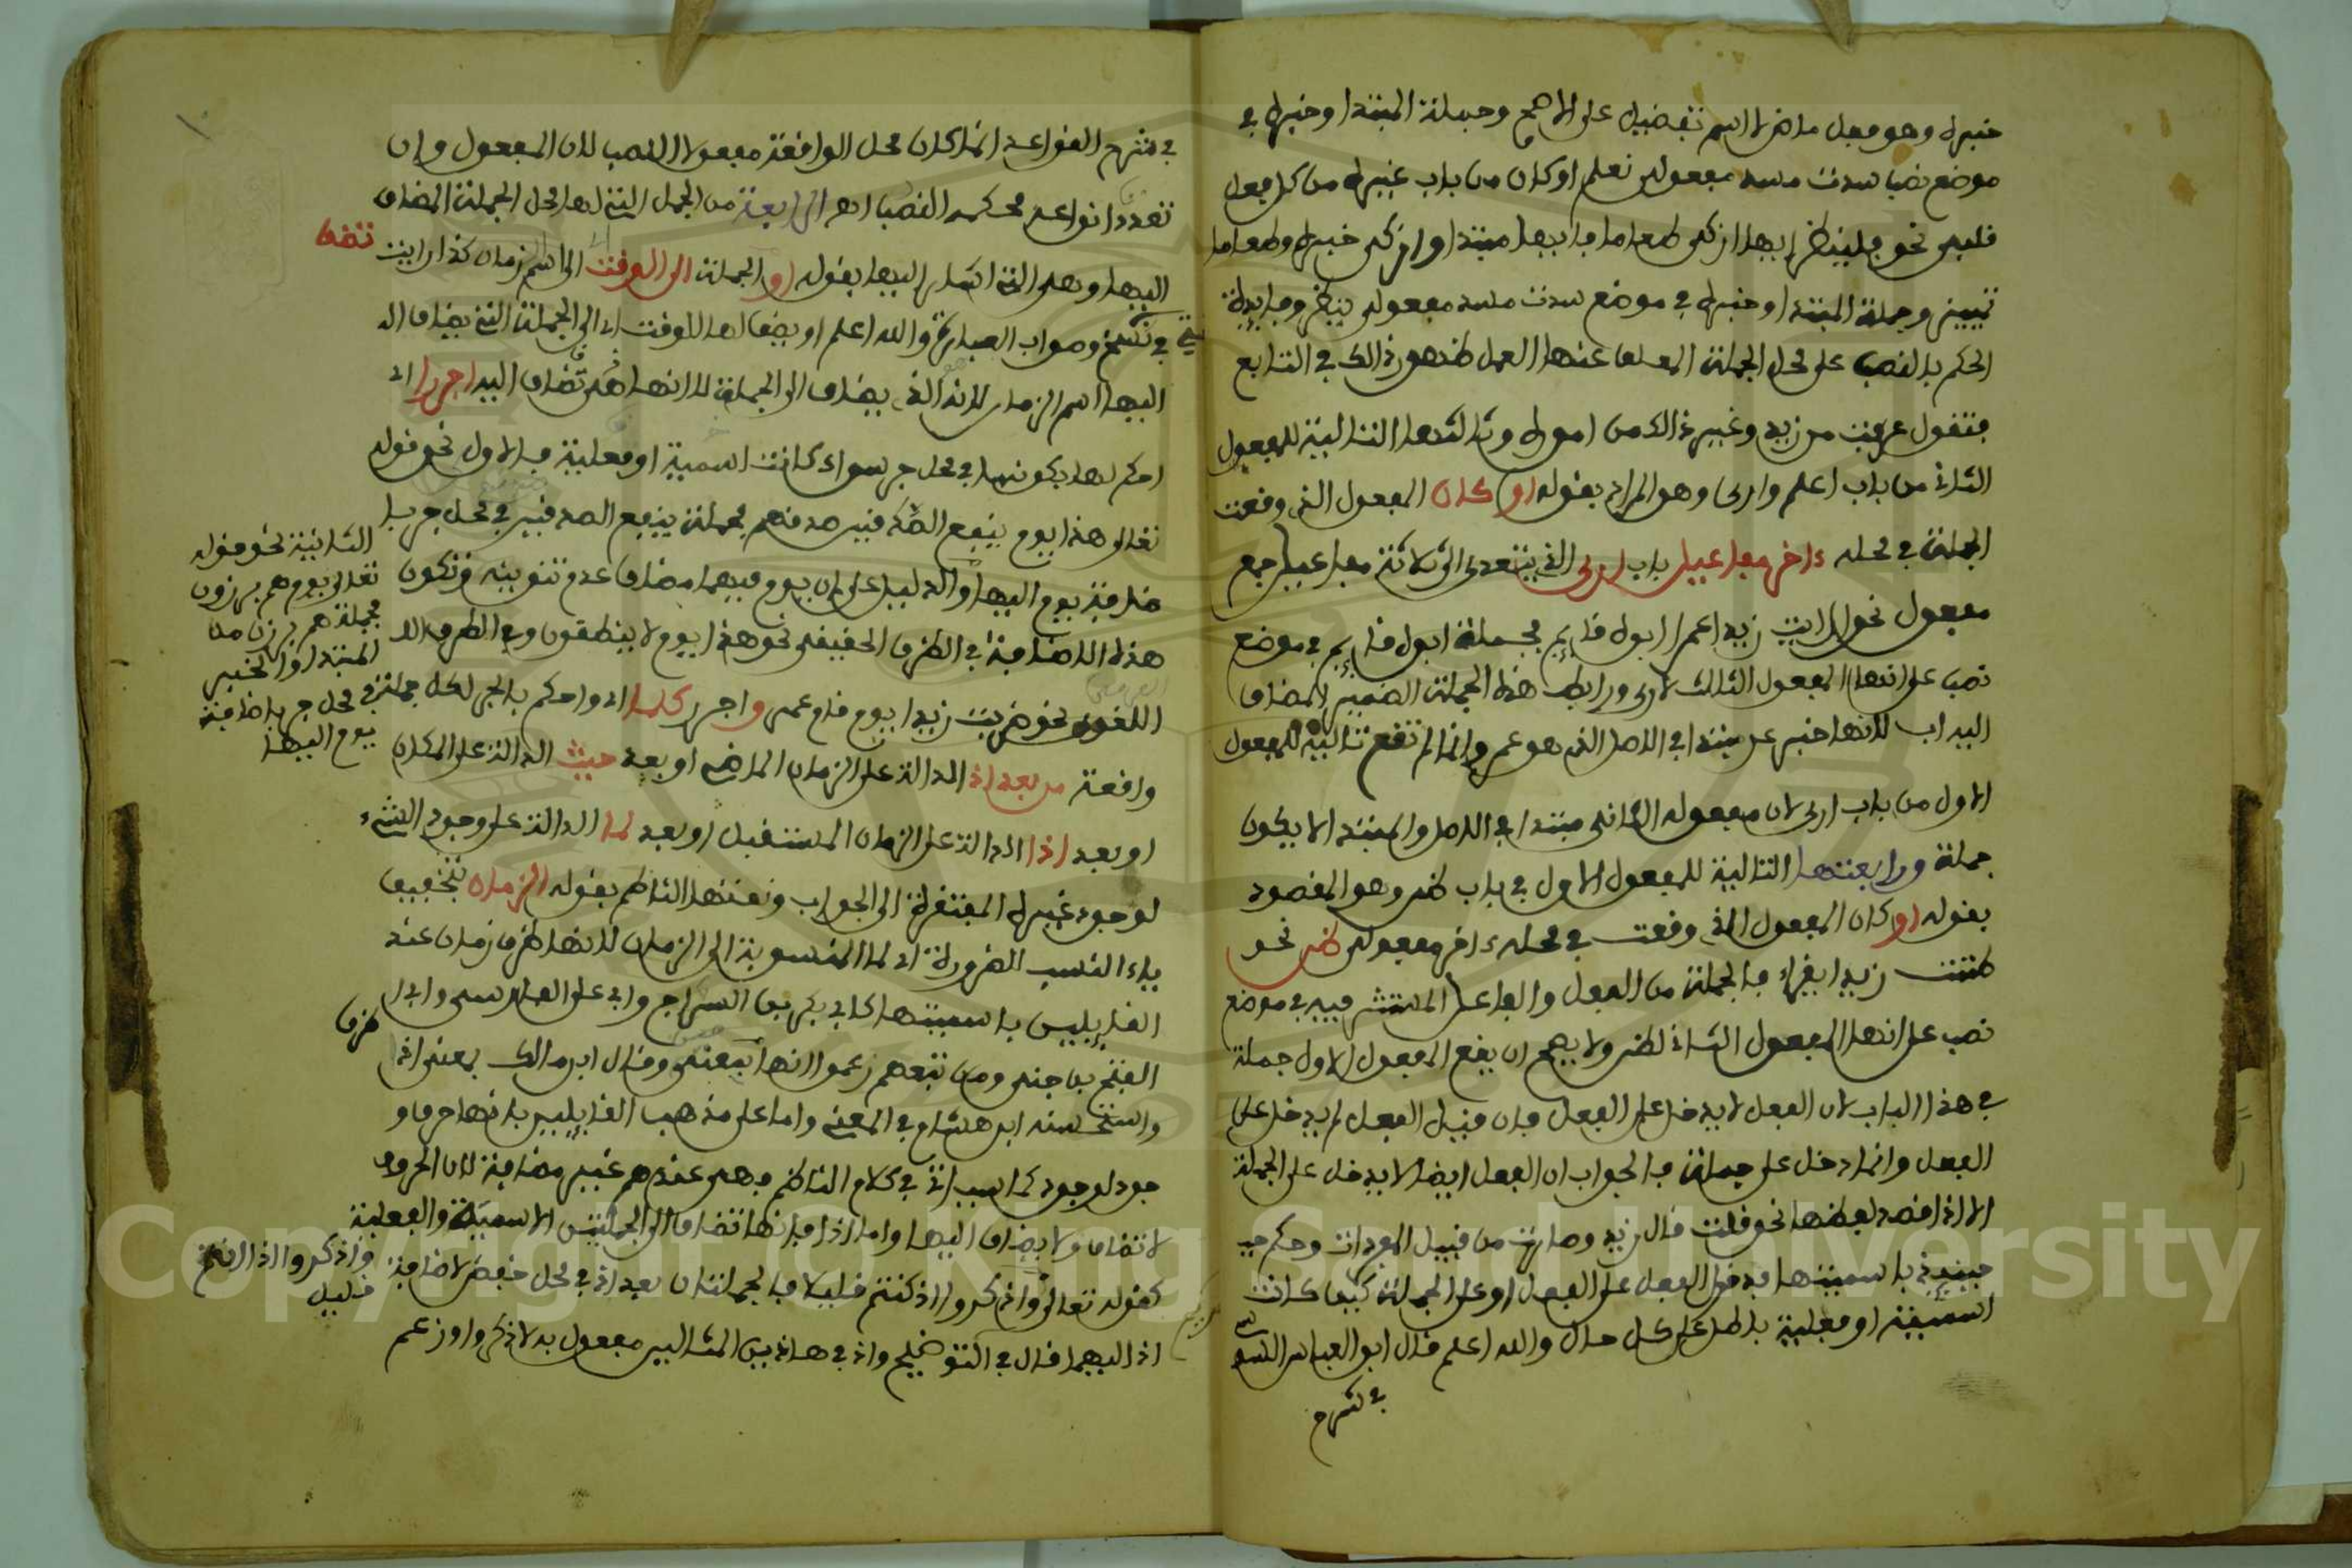 خبره وهو فعل ماض لا اسم تفضيل على الاصح وجملة المبتدا وخبره في
موضع نصب سدت مسد مفعولي نعلم او كان من باب غيره من كل فعل
قلبي نحو فلينظر ايها ازكى طعاما فايها مبتدا وازكى خبره وطعاما
تمييز وجملة المبتدا وخبره في موضع سدت مسد مفعولي ينظر وفايدة
الحكم بالنصب على محل الجملة المعلق عنها العمل ظهور ذالك في التابع
فتقول عرفت من زيد وغير ذالك من اموره وثالثها التالية للمفعول
الثاني من باب اعلم وارى وهو المراد بقوله او كان المفعول الذي وقعت
الجملة في محله ءاخر مفاعيل باب ارى الذي يتعدى الى ثلاثة مفاعيل جمع
مفعول نحو اريت زيدا عمرا ابوه قايم فجملة ابوه قايم في موضع
نصب على انها المفعول الثالث لارى ورابط هذه الجملة الضمير المضاف
اليه اب لانها خبر عن مبتدا في الاصل الذي هو عمرو وانما لم تقع تالية للمفعول
الاول من باب ارى لان مفعوله الثاني مبتدا في الاصل والمبتدا لا يكون
جملة ورابعتها التالية للمفعول الاول في باب ظن وهو المقصود
بقوله او كان المفعول الذي وقعت في محله ءاخر مفعولي ظن نحو
ظننت زيدا يقرا فالجملة من الفعل والفاعل المستتر فيه في موضع
نصب على انها المفعول الثاني لظن ولا يصح ان يقع المفعول الاول جملة
في هذا الباب لان الفعل لا يدخل على الفعل فان قيل الفعل لم يدخل على
الفعل وانما دخل على جملة فالجواب ان الفعل ايضا لا يدخل على الجملة
الا اذا قصد لفظها نحو قلت قال زيد وصارت من قبيل المفردات وحكم حيـ
حينيذ باسميتها فدخول الفعل على الفعل او على الجملة كيف كانت
اسمية او فعلية باطل على كل حال والله اعلم قال ابو العباس
في شرح
في شرح القواعد انما كان محل الواقعة مفعولا النصب لان المفعول وان
تعدد انواعه محكمه النصب اهـ الرابعة من الجمل التي لها محل الجملة المضاف
اليها وهي التي اشار اليها بقوله او الجملة الى الوقت الى اسم زمان كذا رايت
تضف
في نسخ وصواب العبارة والله اعلم او يضف لها الوقت اي الى الجملة التي يضاف الـ
اليها اسم الزمان لانه الذي يضاف الى الجملة لا انها هي تضاف اليه اجررا اي
احكم لها بكونها في محل جر سواء كانت اسمية او فعلية فالاول نحو قوله
تعالى هذا يوم ينفع الصادقين صدقهم فجملة ينفع الصادقين في محل جر با
ضافة يوم اليها والدليل على ان يوم فيهما مضاف عدم تنوينه وتكون
هذه الاضافة في الظرف الحقيقي نحو هذا يوم لا ينطقون وفي الظرف
اللغوي نحو ضربت زيدا يوم قام عمرو واجرر كلما اي واحكم بالجر لكل جملة
واقعة من بعد اذ الدالة على الزمان الماضي او بعد حيث الدالة على المكان
او بعد اذا الدالة على الزمان المستقبل او بعد لما الدالة على وجود الشيء
لوجود غيره المفتقرة الى الجواب ونعتها الناظم بقوله الزمان بتخفيف
ياء النسب للضرورة اي لما المنسوبة الى الزمان لانها ظرف زمان عند
القايلين باسميتها كابي بكر بن السراج وابي على الفارسى وابي ا
الفتح بن جنى ومن تبعهم زعموا انها بمعنى وقال ابن مالك بمعنى اذ
ظرف
واستحسنه ابن هشام في المغني واما على مذهب القايلين بانها حرف و
جود لوجود كما سياتي في كلام الناظم فهى عندهم غير مضافة لان الحروف
لا تضاف ولا يضاف اليها واما اذ فانها تضاف الى الجملتين الاسمية والفعلية
كقوله تعالى واذكروا اذ كنتم قليلا فالجملتان بعد اذ في محل خفض لاضافة
اذ اليهما قال في التوضيح واذ في هاذين المثالين مفعول به لاذكروا وزعم
الثانية نحو قوله
تعالى يوم هم برزون
فجملة هم برزون من
المبتدا والخبر
في محل جر باضافة
يوم اليها
واذكروا اذ انتم
قليل